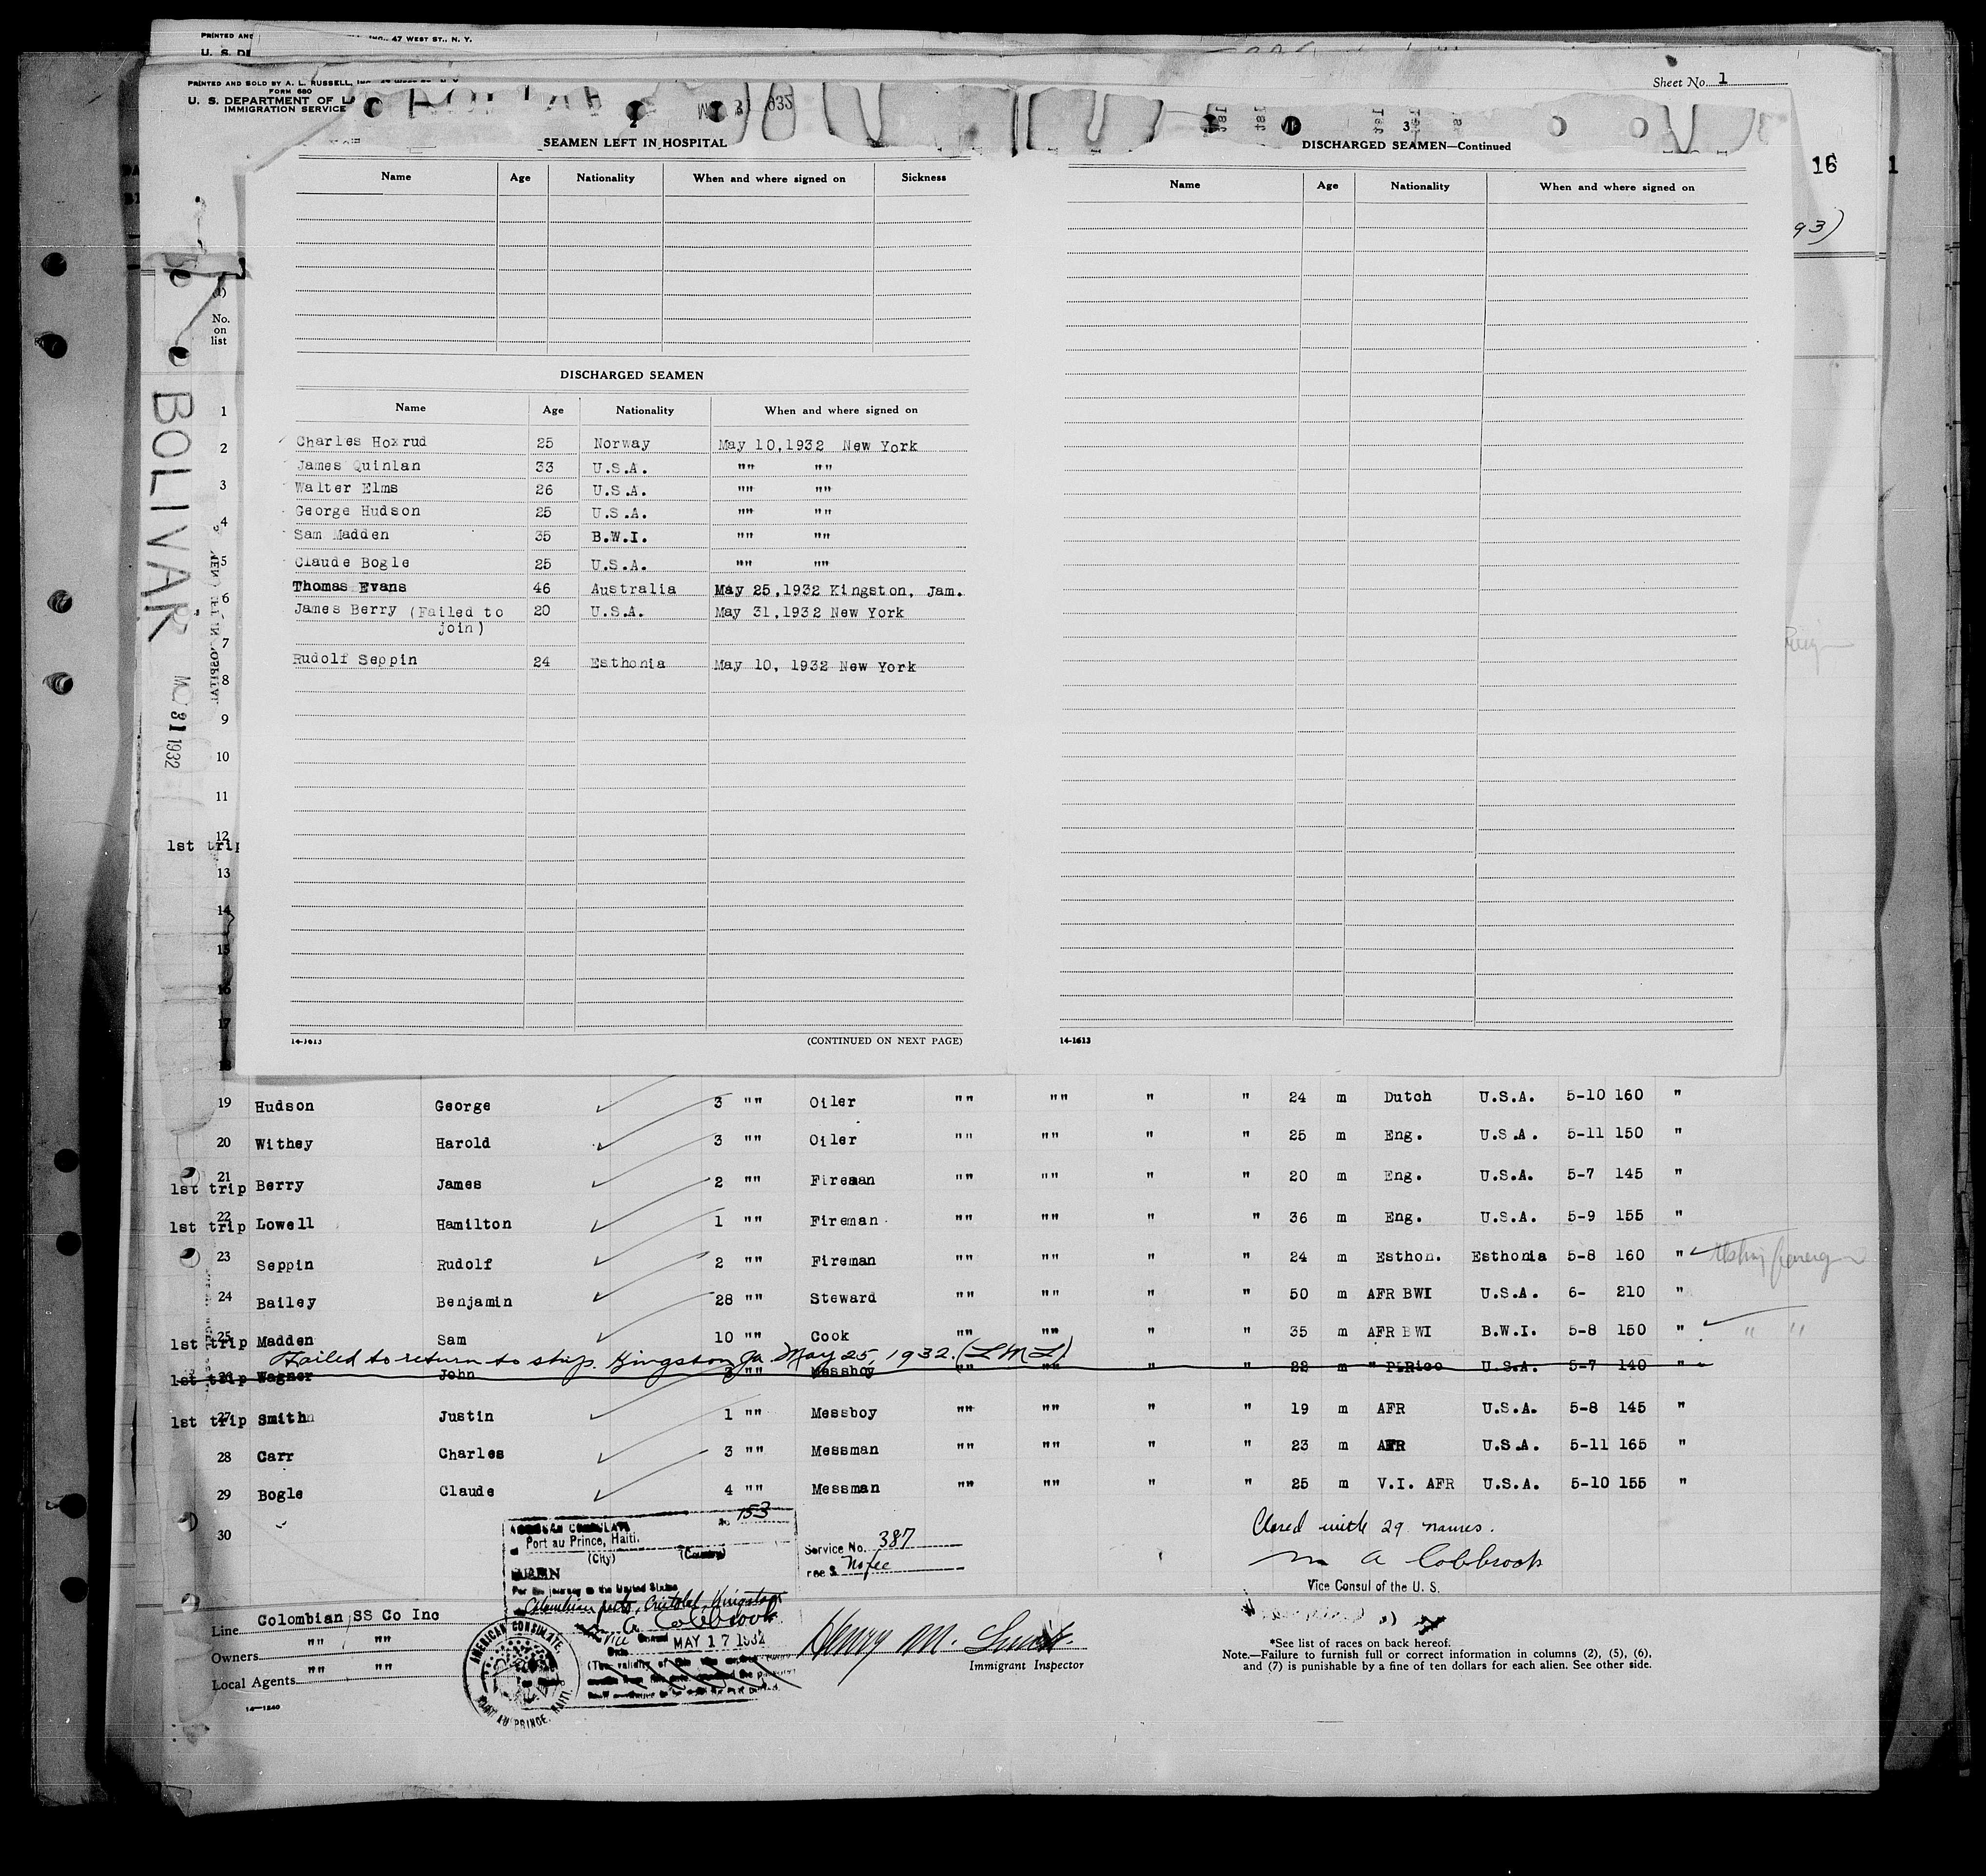 PRINTED AND
INC., 47 WEST ST., N. Y.
U. S. DE
PRINTED AND SOLD BY A. L. RUSSELL,
FORM 680
U. S. DEPARTMENT OF L
IMMIGRATION SERVICE
Sheet No. 1
16
1
93)
(1)
No.
on
list
BOLIVAR
31 1932
SEAMEN LEFT IN HOSPITAL
Name Age Nationality When and where signed on Sickness
DISCHARGED SEAMEN
Name Age Nationality When and where signed on
Charles Hoxrud 25 Norway May 10,1932 New York
James Quinlan 33 U.S.A. "" ""
Walter Elms 26 U.S.A. "" ""
George Hudson 25 U.S.A. "" ""
Sam Madden 35 B.W.I. "" ""
Claude Bogle 25 U.S.A. "" ""
Thomas Evans 46 Australia May 25,1932 Kingston, Jam.
James Berry (Failed to 20 U.S.A. May 31,1932 New York
join)
Rudolf Seppin 24 Esthonia May 10, 1932 New York
14-1613 (CONTINUED ON NEXT PAGE)
3
DISCHARGED SEAMEN—Continued
Name Age Nationality When and where signed on
14-1613
1
2
3
4
5
6
7
8
9
10
11
12
1st trip
13
14
15
16
17
18
19 Hudson George 3 "" Oiler "" "" " " 24 m Dutch U.S.A. 5-10 160 "
20 Withey Harold 3 "" Oiler "" "" " " 25 m Eng. U.S.A. 5-11 150 "
21 1st trip Berry James 2 "" Fireman "" "" " " 20 m Eng. U.S.A. 5-7 145 "
22 1st trip Lowell Hamilton 1 "" Fireman "" "" " " 36 m Eng. U.S.A. 5-9 155 "
23 Seppin Rudolf 2 "" Fireman "" "" " " 24 m Esthon. Esthonia 5-8 160 "
24 Bailey Benjamin 28 "" Steward "" "" " " 50 m AFR BWI U.S.A. 6- 210 "
25 1st trip Madden Sam 10 "" Cook "" "" " " 35 m AFR BWI B.W.I. 5-8 150 " " "
Failed to return to ship. Kingston Ja. May 25, 1932. (LML)
26 1st trip Wagner John 3 "" Messboy "" "" " " 22 m " P.Rico U.S.A. 5-7 140 "
27 1st trip Smith Justin 1 "" Messboy "" "" " " 19 m AFR U.S.A. 5-8 145 "
28 Carr Charles 3 "" Messman "" "" " " 23 m AFR U.S.A. 5-11 165 "
29 Bogle Claude 4 "" Messman "" "" " " 25 m V.I. AFR U.S.A. 5-10 155 "
30
No 153
AMERICAN CONSULATE
at Port au Prince, Haiti.
(City) (Country)
SEEN
For the journey to the United States
Colombian ports, Cristobal, Kingston
Vice Consul
Date MAY 17 1932
AMERICAN CONSULATE
PORT AU PRINCE, HAITI.
Service No. 387
Fee $ No fee
Closed with 29 names.
Vice Consul of the U. S.
Line Colombian SS Co Inc
Owners "" ""
Local Agents "" ""
14—1240
Henry M.
Immigrant Inspector
*See list of races on back hereof.
Note.—Failure to furnish full or correct information in columns (2), (5), (6),
and (7) is punishable by a fine of ten dollars for each alien. See other side.